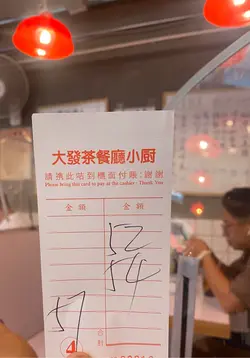 大發茶餐廳小厨
請携此咭到櫃面付賬:謝謝
Please bring this card to pay at the cashier - Thank You
金額 金額
52
54
57
④ 合計